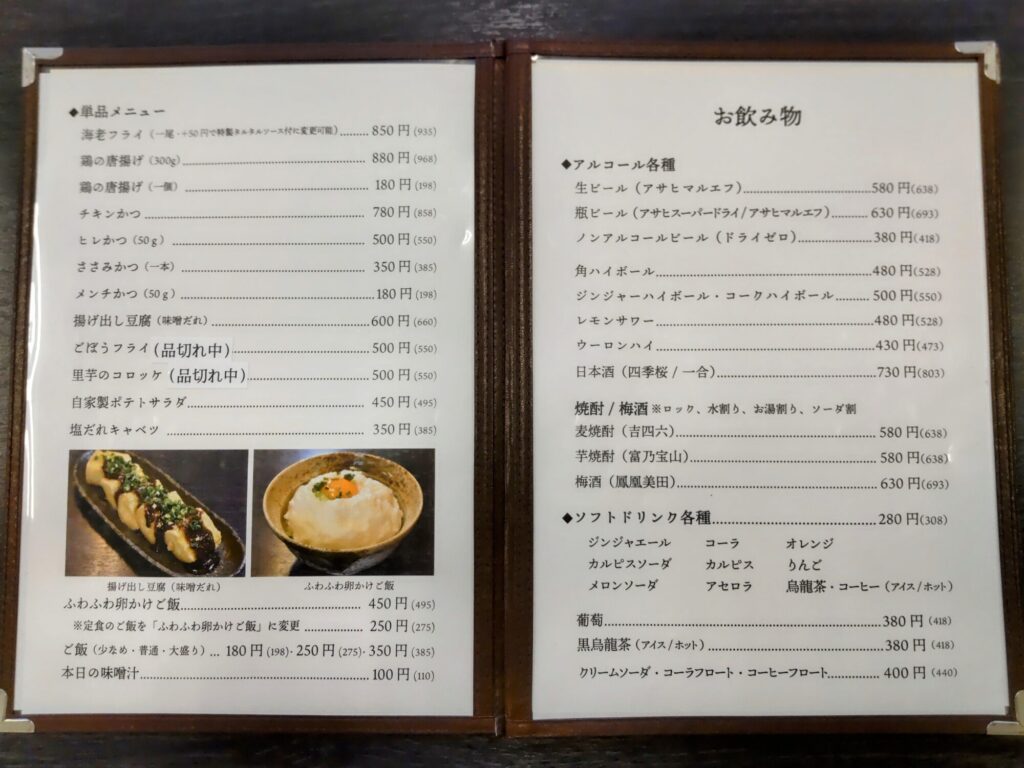 ◆単品メニュー
海老フライ（一尾・+50円で特製タルタルソース付に変更可能）......850円(935)
鶏の唐揚げ（300g）......880円(968)
鶏の唐揚げ（一個）......180円(198)
チキンかつ......780円(858)
ヒレかつ（50g）......500円(550)
ささみかつ（一本）......350円(385)
メンチかつ（50g）......180円(198)
揚げ出し豆腐（味噌だれ）......600円(660)
ごぼうフライ(品切れ中)......500円(550)
里芋のコロッケ(品切れ中)......500円(550)
自家製ポテトサラダ......450円(495)
塩だれキャベツ......350円(385)
揚げ出し豆腐（味噌だれ） ふわふわ卵かけご飯
ふわふわ卵かけご飯......450円(495)
※定食のご飯を「ふわふわ卵かけご飯」に変更......250円(275)
ご飯（少なめ・普通・大盛り）...180円(198)・250円(275)・350円(385)
本日の味噌汁......100円(110)
お飲み物
◆アルコール各種
生ビール（アサヒマルエフ）......580円(638)
瓶ビール（アサヒスーパードライ/アサヒマルエフ）......630円(693)
ノンアルコールビール（ドライゼロ）......380円(418)
角ハイボール......480円(528)
ジンジャーハイボール・コークハイボール......500円(550)
レモンサワー......480円(528)
ウーロンハイ......430円(473)
日本酒（四季桜/一合）......730円(803)
焼酎/梅酒 ※ロック、水割り、お湯割り、ソーダ割
麦焼酎（吉四六）......580円(638)
芋焼酎（富乃宝山）......580円(638)
梅酒（鳳凰美田）......630円(693)
◆ソフトドリンク各種......280円(308)
ジンジャエール コーラ オレンジ
カルピスソーダ カルピス りんご
メロンソーダ アセロラ 烏龍茶・コーヒー（アイス/ホット）
葡萄......380円(418)
黒烏龍茶（アイス/ホット）......380円(418)
クリームソーダ・コーラフロート・コーヒーフロート......400円(440)